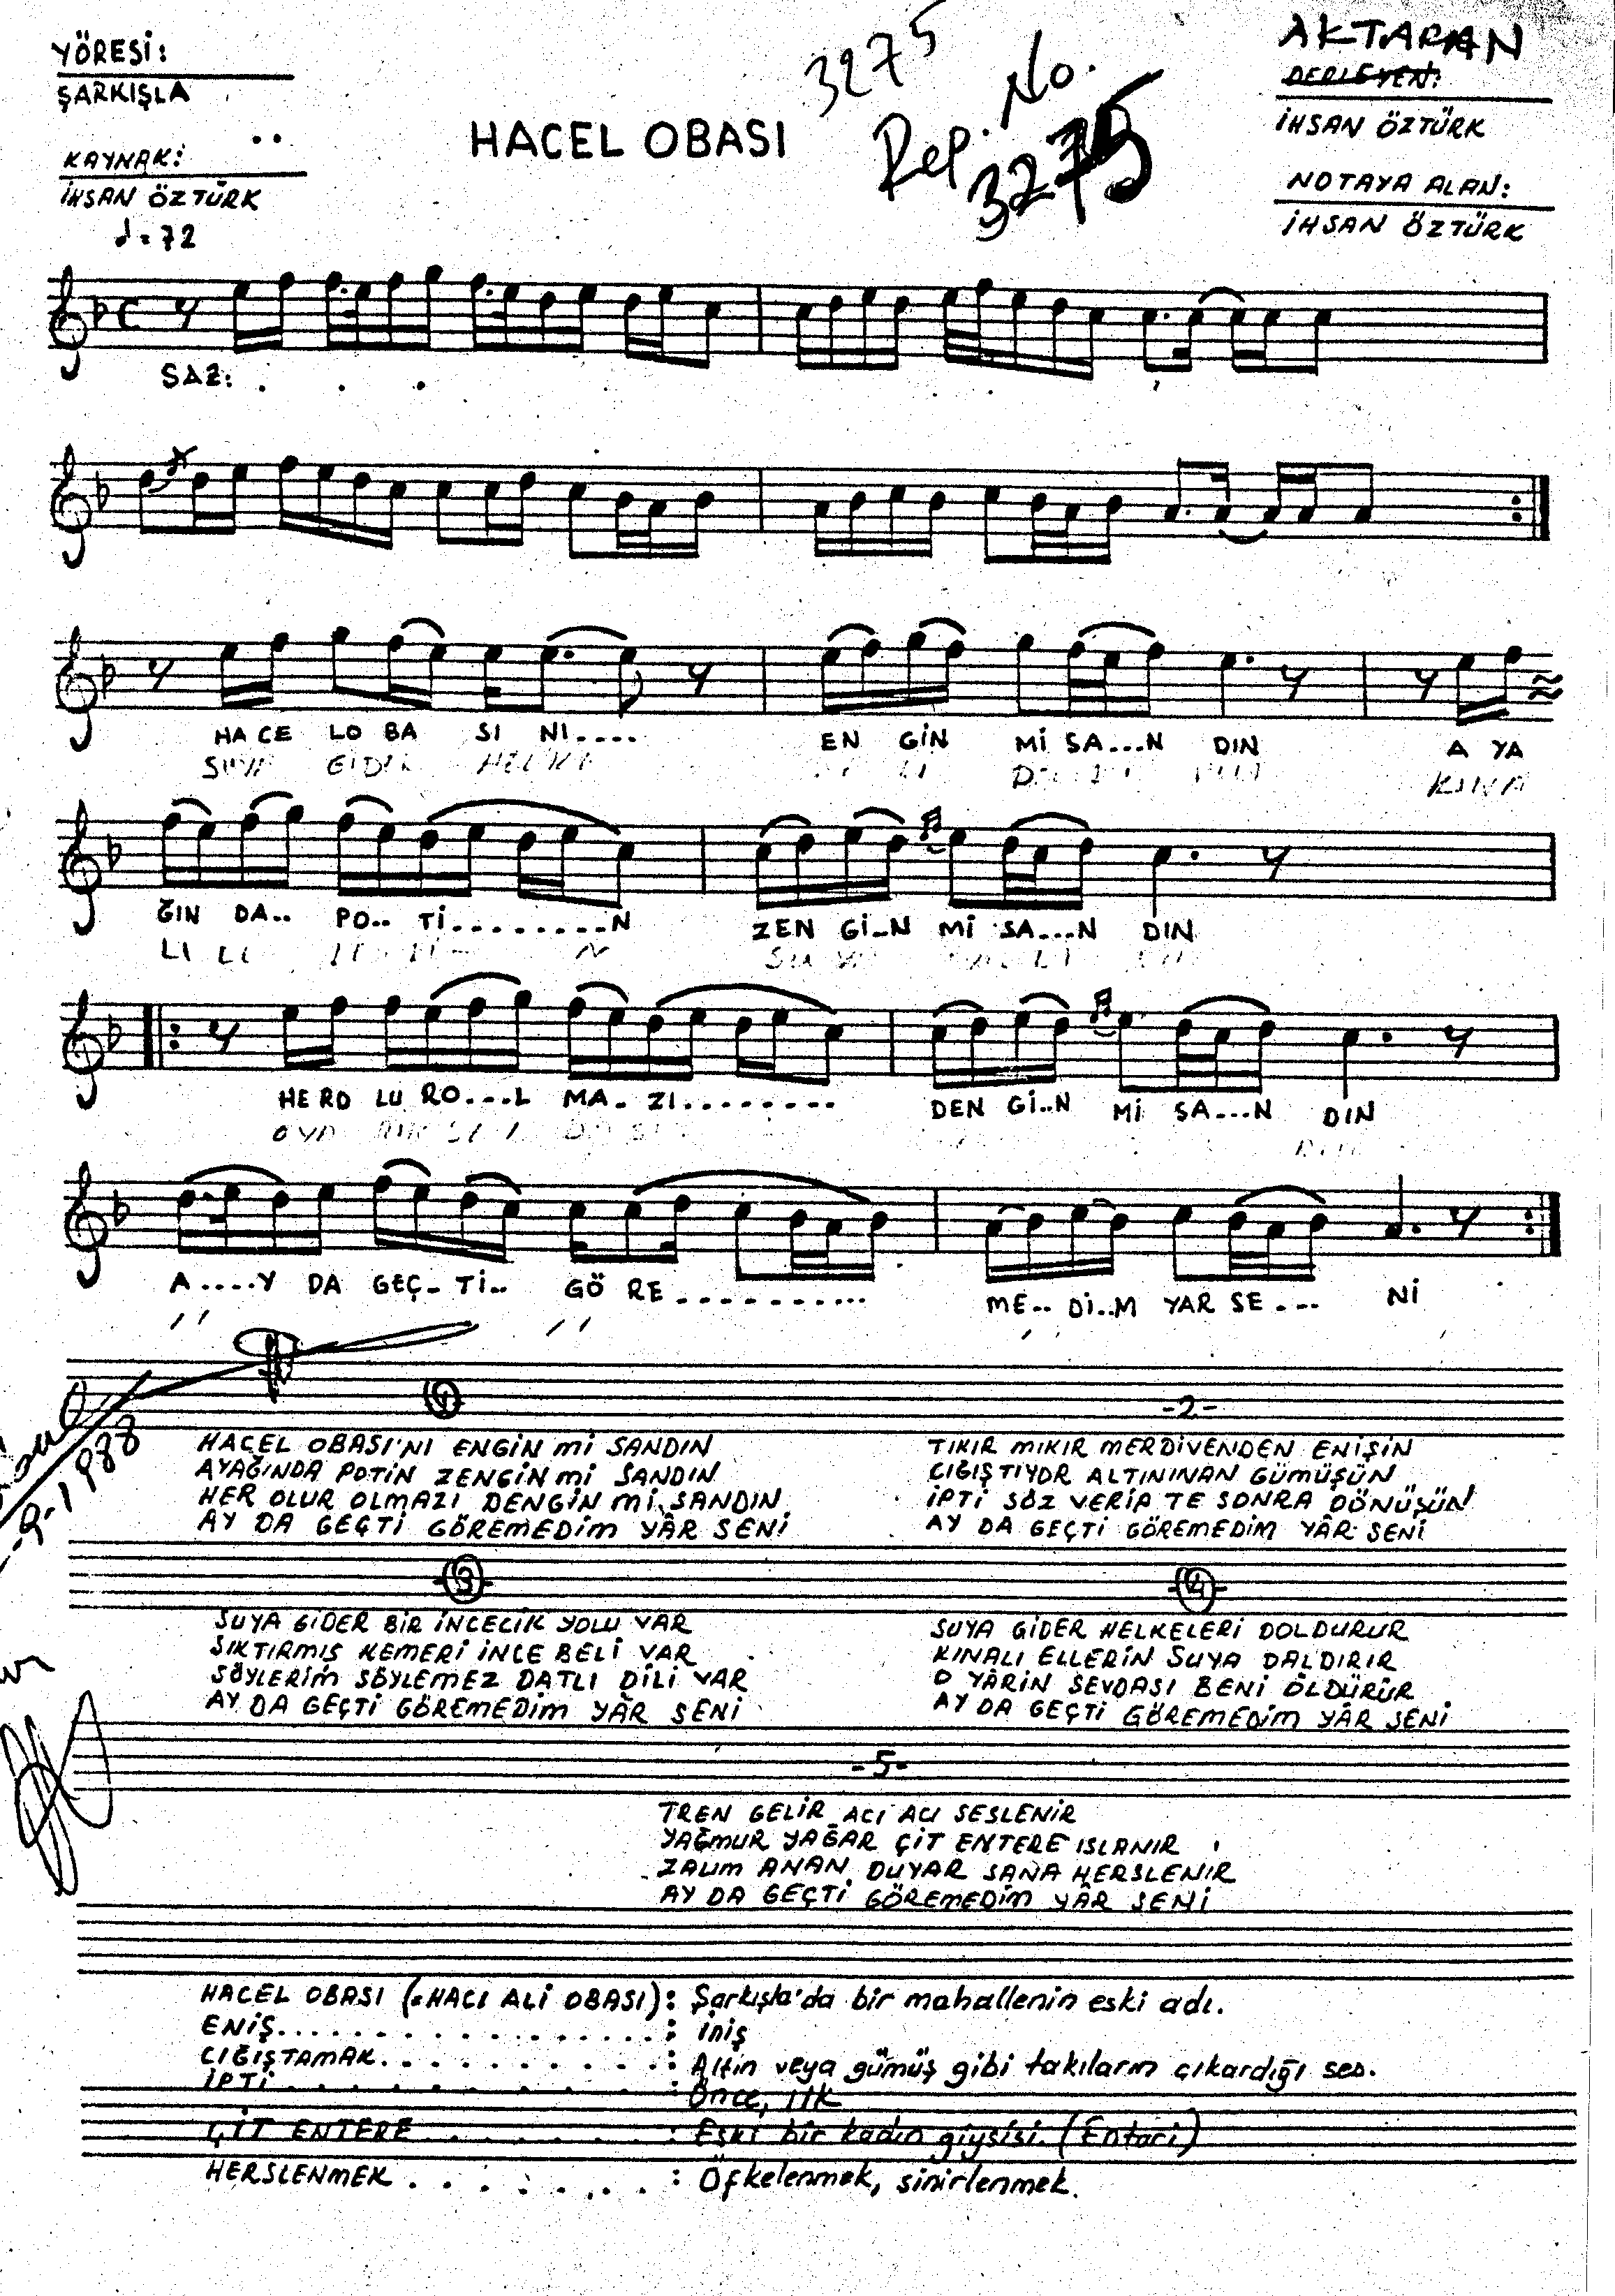 YÖRESİ:
ŞARKIŞLA
KAYNAK:
İHSAN ÖZTÜRK
♩ = 72
HACEL OBASI
3275
Rep. No.
3275
AKTARAN
DERLEYEN:
İHSAN ÖZTÜRK
NOTAYA ALAN:
İHSAN ÖZTÜRK
SAZ:
HA CE LO BA SI NI.... EN GİN Mİ SA...N DIN A YA
SUYA GİDER HELKE KINA
ĞIN DA.. PO.. Tİ.........N ZEN Gİ_N Mİ SA...N DIN
LI
HE RO LU RO...L MA_ ZI........ DEN Gİ..N Mİ SA...N DIN
A....Y DA GEÇ_ Tİ.. GÖ RE........... ME.. Dİ..M YAR SE... Nİ
1
HACEL OBASI'NI ENGİN Mİ SANDIN
AYAĞINDA POTİN ZENGİN Mİ SANDIN
HER OLUR OLMAZI DENGİN Mİ SANDIN
AY DA GEÇTİ GÖREMEDİM YÂR SENİ
-2-
TIKIR MIKIR MERDİVENDEN ENİŞİN
CIĞIŞTIYOR ALTININAN GÜMÜŞÜN
İPTİ SÖZ VERİP TE SONRA DÖNÜŞÜN
AY DA GEÇTİ GÖREMEDİM YÂR SENİ
-3-
SUYA GİDER BİR İNCECİK YOLU VAR
SIKTIRMIŞ KEMERİ İNCE BELİ VAR
SÖYLERİM SÖYLEMEZ DATLI DİLİ VAR
AY DA GEÇTİ GÖREMEDİM YÂR SENİ
-4-
SUYA GİDER HELKELERİ DOLDURUR
KINALI ELLERİN SUYA DALDIRIR
O YÂRİN SEVDASI BENİ ÖLDÜRÜR
AY DA GEÇTİ GÖREMEDİM YÂR SENİ
-5-
TREN GELİR ACI ACI SESLENİR
YAĞMUR YAĞAR ÇİT ENTERE ISLANIR
ZALIM ANAN DUYAR SANA HERSLENIR
AY DA GEÇTİ GÖREMEDİM YÂR SENİ
HACEL OBASI (=HACI ALİ OBASI): Şarkışla'da bir mahallenin eski adı.
ENİŞ.................: İniş
CIĞIŞTAMAK...........: Altın veya gümüş gibi takıların çıkardığı ses.
İPTİ.................: Önce, ilk
ÇİT ENTERE...........: Eski bir kadın giysisi. (Entari)
HERSLENMEK.......: Öfkelenmek, sinirlenmek.